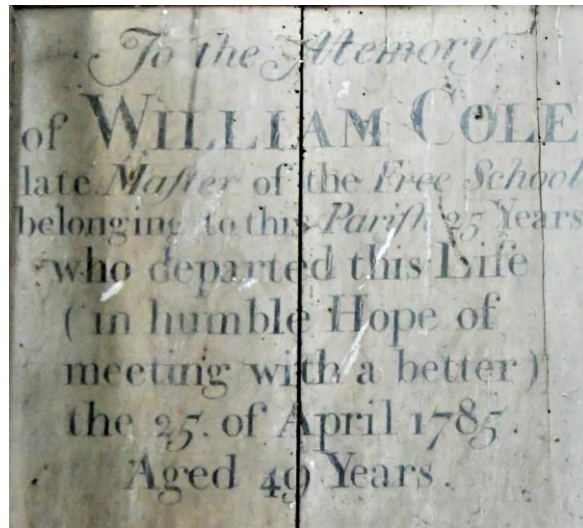 To the Memory
of WILLIAM COLE
late Maſter of the Free School
belonging to this Pariſh 25 Years
who departed this Life
( in humble Hope of
meeting with a better )
the 25. of April 1785.
Aged 49 Years.